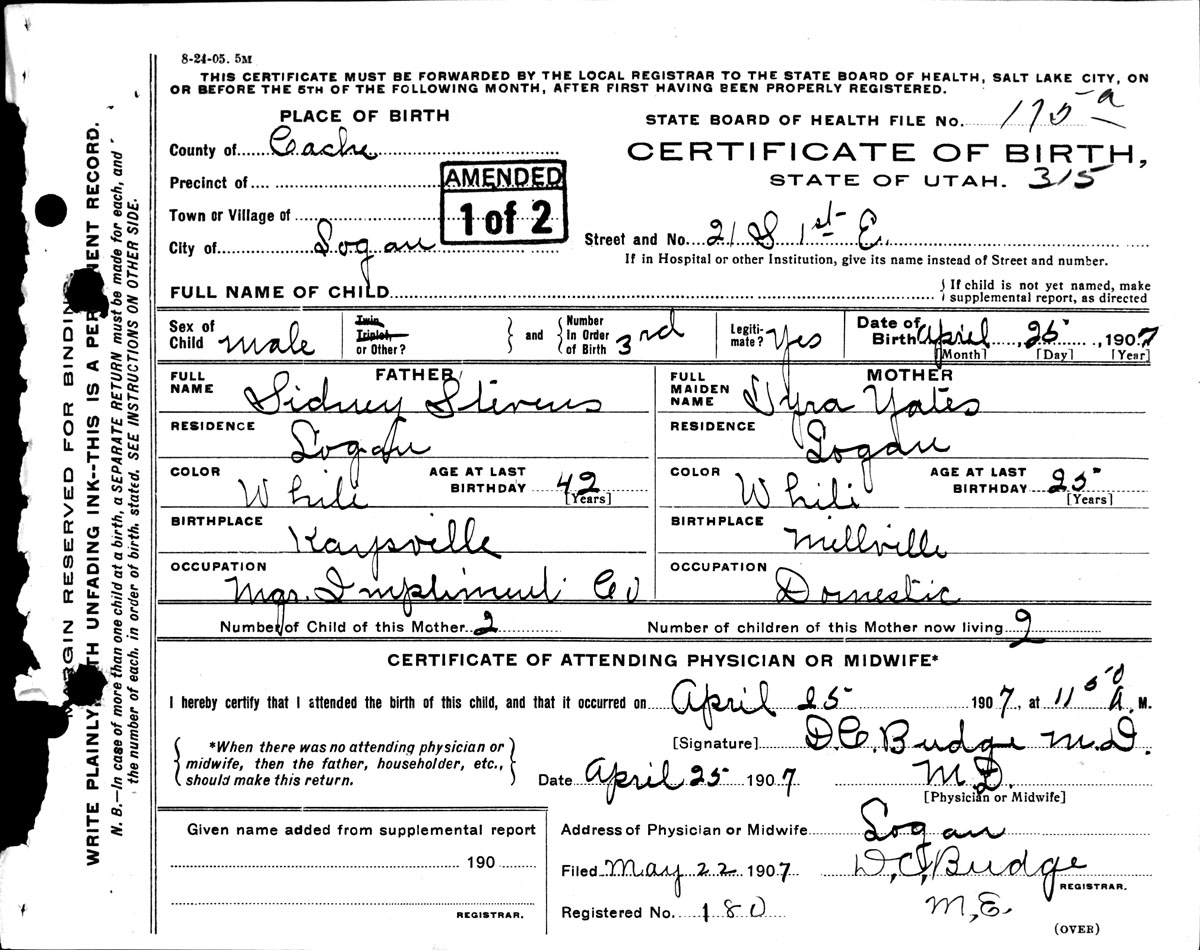 8-24-05. 5M
THIS CERTIFICATE MUST BE FORWARDED BY THE LOCAL REGISTRAR TO THE STATE BOARD OF HEALTH, SALT LAKE CITY, ON
OR BEFORE THE 5TH OF THE FOLLOWING MONTH, AFTER FIRST HAVING BEEN PROPERLY REGISTERED.
PLACE OF BIRTH
STATE BOARD OF HEALTH FILE No. 175 a
County of Cache
CERTIFICATE OF BIRTH,
STATE OF UTAH. 315
Precinct of
AMENDED
1 of 2
Town or Village of
City of Logan
Street and No. 21 S 1st E.
If in Hospital or other Institution, give its name instead of Street and number.
FULL NAME OF CHILD
If child is not yet named, make
supplemental report, as directed
Sex of Child male
Twin, Triplet, or Other?
and
Number In Order of Birth 3rd
Legiti-mate? Yes
Date of Birth April 25, 1907
[Month] [Day] [Year]
FATHER
FULL NAME Sidney Stevens
RESIDENCE Logan
COLOR White
AGE AT LAST BIRTHDAY 42
[Years]
BIRTHPLACE Kaysville
OCCUPATION Mgr. Impliment Co
MOTHER
FULL MAIDEN NAME Yates
RESIDENCE Logan
COLOR White
AGE AT LAST BIRTHDAY 25
[Years]
BIRTHPLACE Millville
OCCUPATION Domestic
Number of Child of this Mother 2
Number of children of this Mother now living 2
CERTIFICATE OF ATTENDING PHYSICIAN OR MIDWIFE*
I hereby certify that I attended the birth of this child, and that it occurred on April 25 1907, at 11 50 A. M.
*When there was no attending physician or
midwife, then the father, householder, etc.,
should make this return.
[Signature] D.C. Budge M.D.
Date April 25 1907 M.D.
[Physician or Midwife]
Given name added from supplemental report
190
REGISTRAR.
Address of Physician or Midwife Logan
Filed May 22 1907 D.C. Budge
REGISTRAR.
Registered No. 180 M,E.
(OVER)
MARGIN RESERVED FOR BINDING
WRITE PLAINLY WITH UNFADING INK--THIS IS A PERMANENT RECORD.
N. B.—In case of more than one child at a birth, a SEPARATE RETURN must be made for each, and
the number of each, in order of birth, stated. SEE INSTRUCTIONS ON OTHER SIDE.